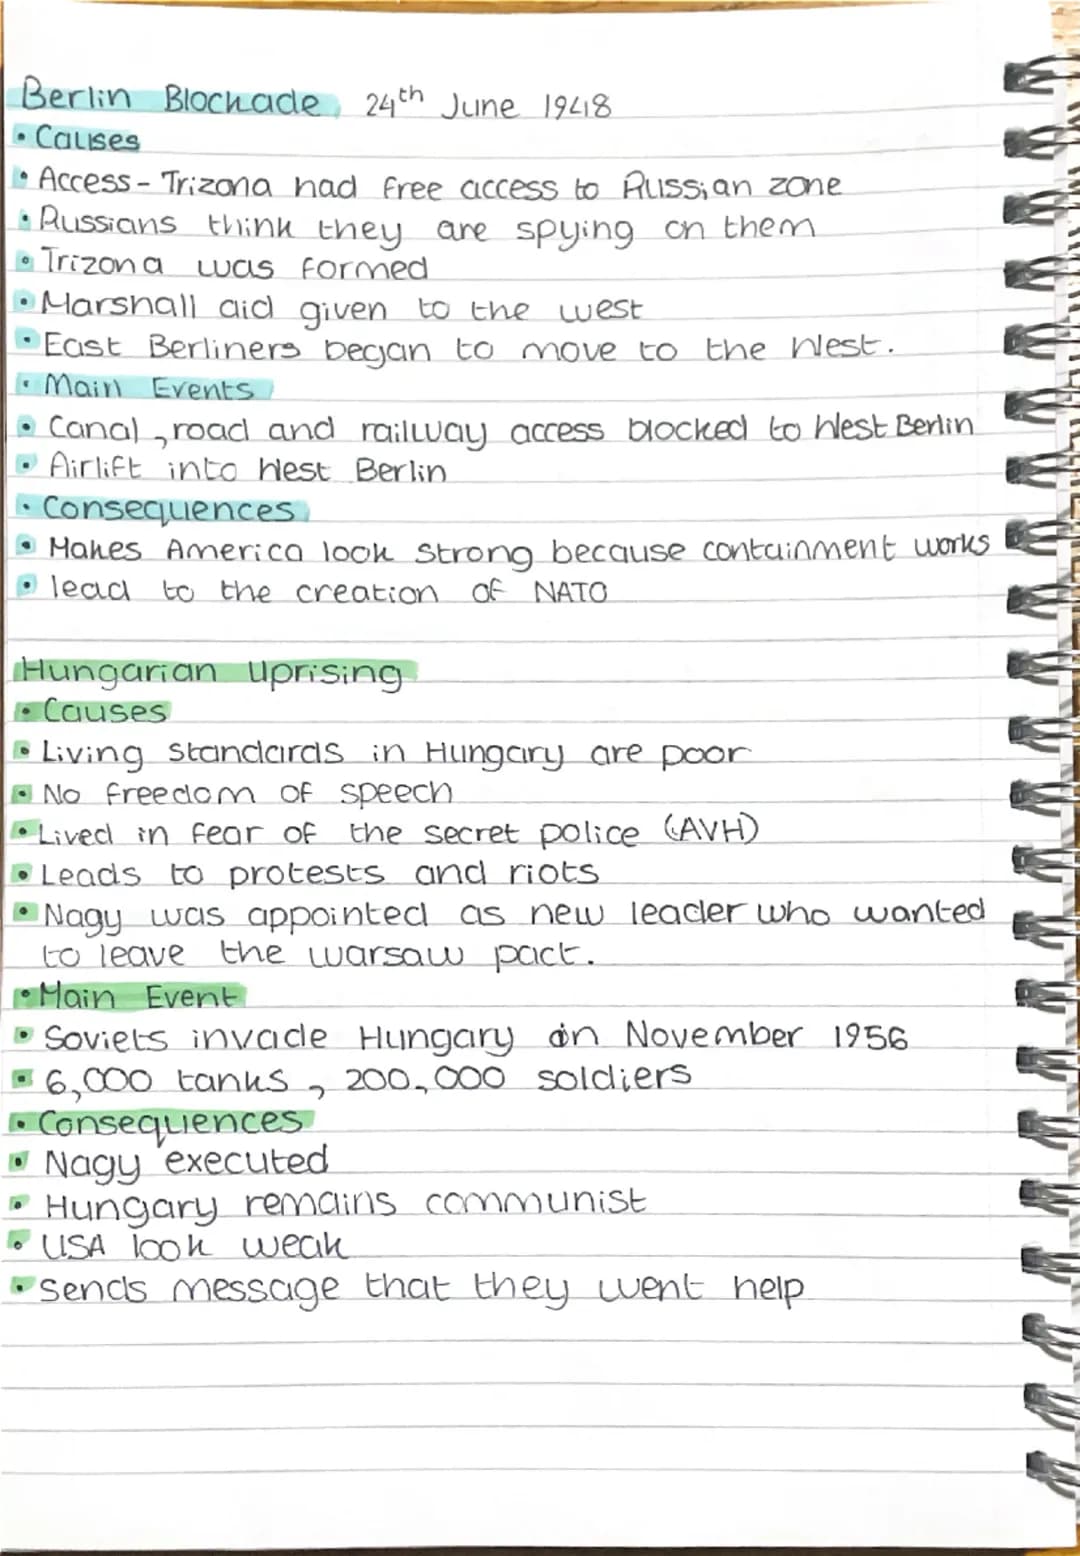 Berlin Blockade 24th June 1948
• Causes
• Access - Trizona had free access to Russian zone
• Russians think they are spying on them
• Trizona was formed
• Marshall aid given to the west
• East Berliners began to move to the West.
• Main Events
• Canal, road and railway access blocked to West Berlin
• Airlift into West Berlin
• Consequences
• Makes America look strong because containment works
• lead to the creation of NATO
Hungarian Uprising
• Causes
• Living standards in Hungary are poor
• No freedom of speech
• Lived in fear of the secret police (AVH)
• Leads to protests and riots
• Nagy was appointed as new leader who wanted
to leave the warsaw pact.
• Main Event
• Soviets invade Hungary in November 1956
• 6,000 tanks, 200,000 soldiers
• Consequences
• Nagy executed
• Hungary remains communist
• USA look weak
• sends message that they wont help